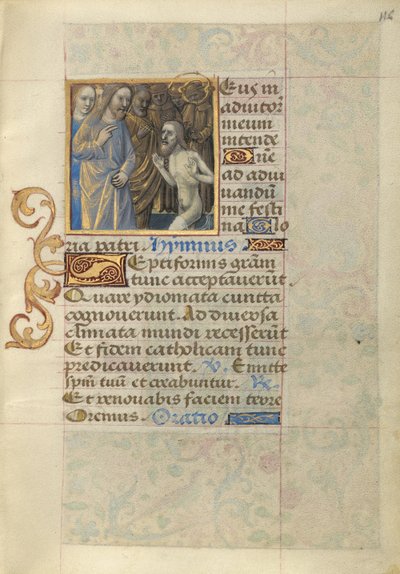 116
Eus in
adiutor
meum
intende
Dne
ad adiu
uandum
me festi
na Glo
ria patri Hymnus
Septiformis gram
tunc acceptauerut
Quare ydiomata cuncta
cognouerunt. Ad diuersa
climata mundi recesserut
Et fidem catholicam tunc
predicauerunt. V. Emitte
spm tuu et creabuntur. Re
Et renouabis faciem terre
Oremus. Oratio